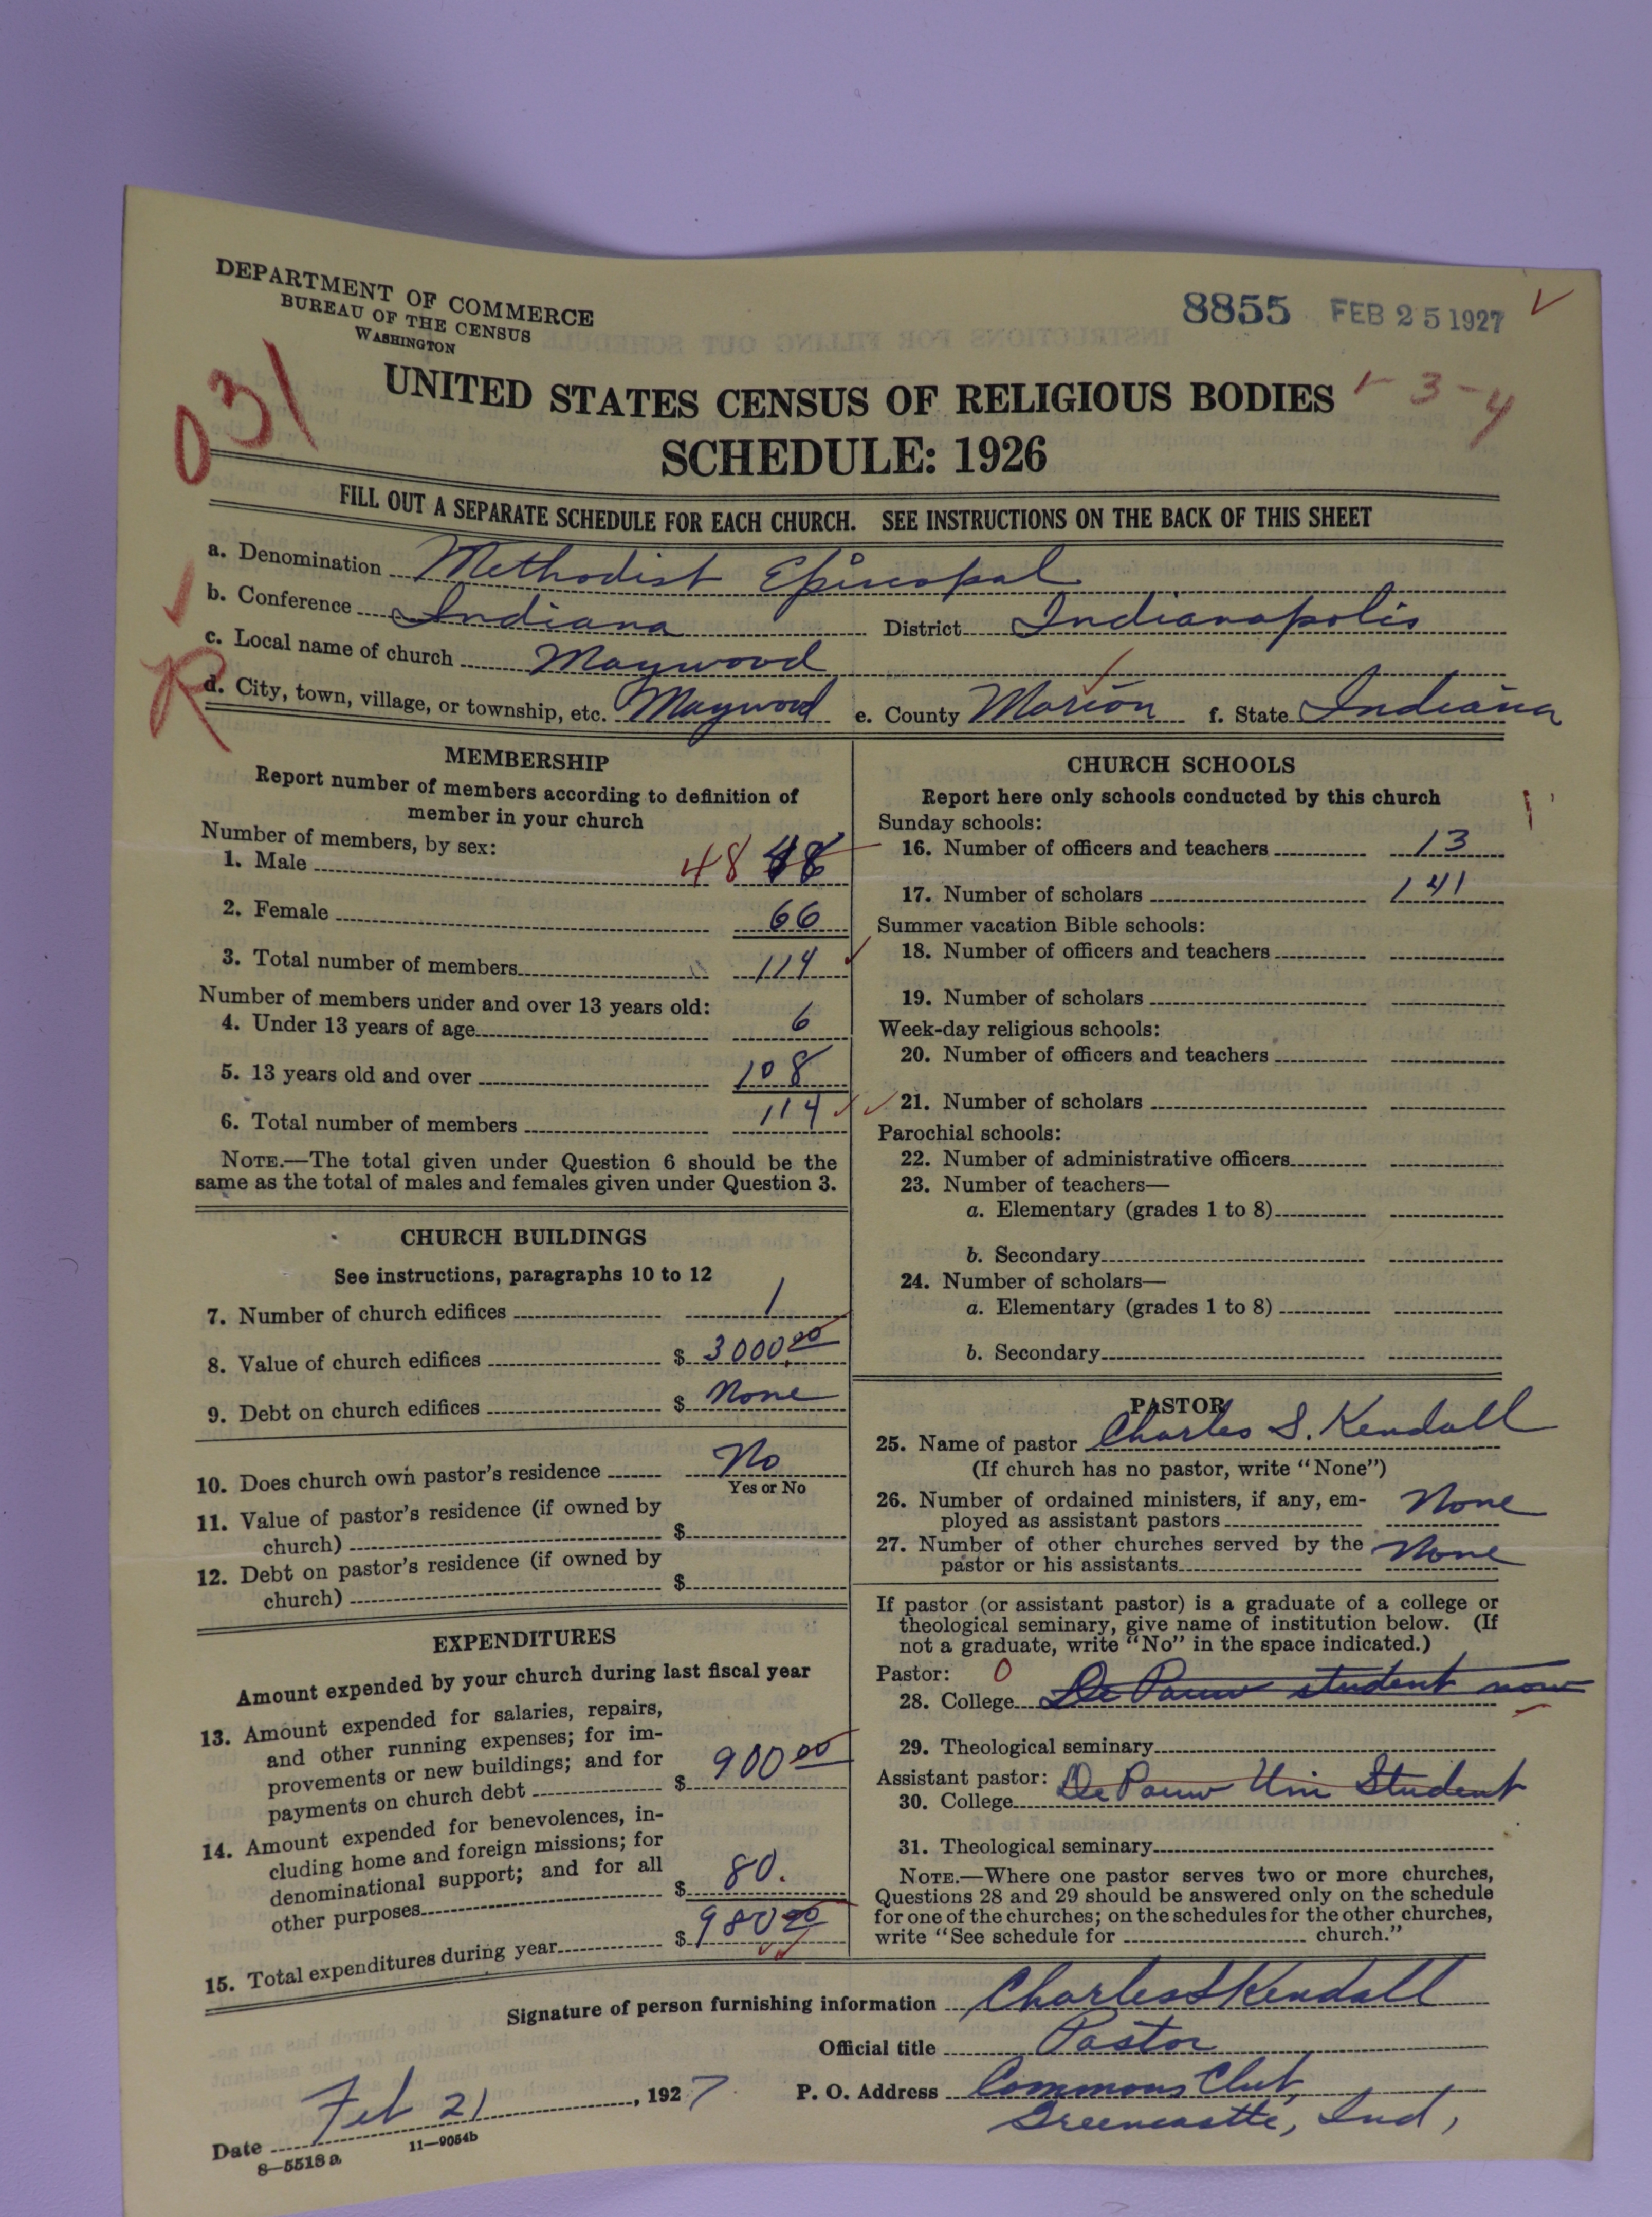 DEPARTMENT OF COMMERCE
BUREAU OF THE CENSUS
WASHINGTON
8855 FEB 25 1927
031
1-3-4
UNITED STATES CENSUS OF RELIGIOUS BODIES
SCHEDULE: 1926
FILL OUT A SEPARATE SCHEDULE FOR EACH CHURCH. SEE INSTRUCTIONS ON THE BACK OF THIS SHEET
a. Denomination Methodist Episcopal
b. Conference Indiana District Indianapolis
c. Local name of church Maywood
R
d. City, town, village, or township, etc. Maywood e. County Marion f. State Indiana
MEMBERSHIP
Report number of members according to definition of
member in your church
Number of members, by sex:
1. Male 48 48
2. Female 66
3. Total number of members 114
Number of members under and over 13 years old:
4. Under 13 years of age 6
5. 13 years old and over 108
6. Total number of members 114
NOTE.—The total given under Question 6 should be the
same as the total of males and females given under Question 3.
CHURCH BUILDINGS
See instructions, paragraphs 10 to 12
7. Number of church edifices 1
8. Value of church edifices $ 3000.00
9. Debt on church edifices $ None
10. Does church own pastor's residence No
Yes or No
11. Value of pastor's residence (if owned by
church) $
12. Debt on pastor's residence (if owned by
church) $
EXPENDITURES
Amount expended by your church during last fiscal year
13. Amount expended for salaries, repairs,
and other running expenses; for im-
provements or new buildings; and for
payments on church debt $ 900 00
14. Amount expended for benevolences, in-
cluding home and foreign missions; for
denominational support; and for all
other purposes $ 80.
15. Total expenditures during year $ 980 00
CHURCH SCHOOLS
Report here only schools conducted by this church
Sunday schools:
16. Number of officers and teachers 13
17. Number of scholars 141
Summer vacation Bible schools:
18. Number of officers and teachers
19. Number of scholars
Week-day religious schools:
20. Number of officers and teachers
21. Number of scholars
Parochial schools:
22. Number of administrative officers
23. Number of teachers—
a. Elementary (grades 1 to 8)
b. Secondary
24. Number of scholars—
a. Elementary (grades 1 to 8)
b. Secondary
PASTOR
25. Name of pastor Charles S. Kendall
(If church has no pastor, write "None")
26. Number of ordained ministers, if any, em-
ployed as assistant pastors None
27. Number of other churches served by the
pastor or his assistants None
If pastor (or assistant pastor) is a graduate of a college or
theological seminary, give name of institution below. (If
not a graduate, write "No" in the space indicated.)
Pastor: 0
28. College De Pauw student now
29. Theological seminary
Assistant pastor:
30. College De Pauw Uni Student
31. Theological seminary
NOTE.—Where one pastor serves two or more churches,
Questions 28 and 29 should be answered only on the schedule
for one of the churches; on the schedules for the other churches,
write "See schedule for church."
Signature of person furnishing information Charles S Kendall
Official title Pastor
Date Feb 21, 1927 P. O. Address Commons Club,
Greencastle, Ind,
8—5518 a 11—9054b